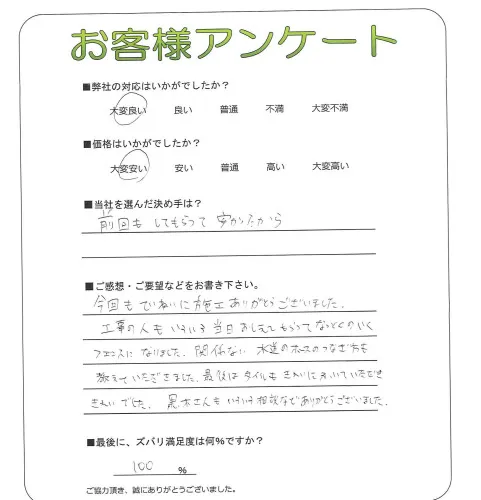 お客様アンケート
■弊社の対応はいかがでしたか？
大変良い 良い 普通 不満 大変不満
■価格はいかがでしたか？
大変安い 安い 普通 高い 大変高い
■当社を選んだ決め手は？
前回も してもらって 安かったから
■ご感想・ご要望などをお書き下さい。
今回も ていねいに 施工 ありがとうございました。
工事の人も いろいろ 当日 おしえてもらって なっとくのいく
フェンスに なりました。 関係ない 水道のホースのつなぎ方も
教えていただきました。最後は タイルも きれいに ふいていただき
きれいでした。 黒木さんも いろいろ 相談など ありがとうございました。
■最後に、ズバリ満足度は何％ですか？
100 ％
ご協力頂き、誠にありがとうございました。